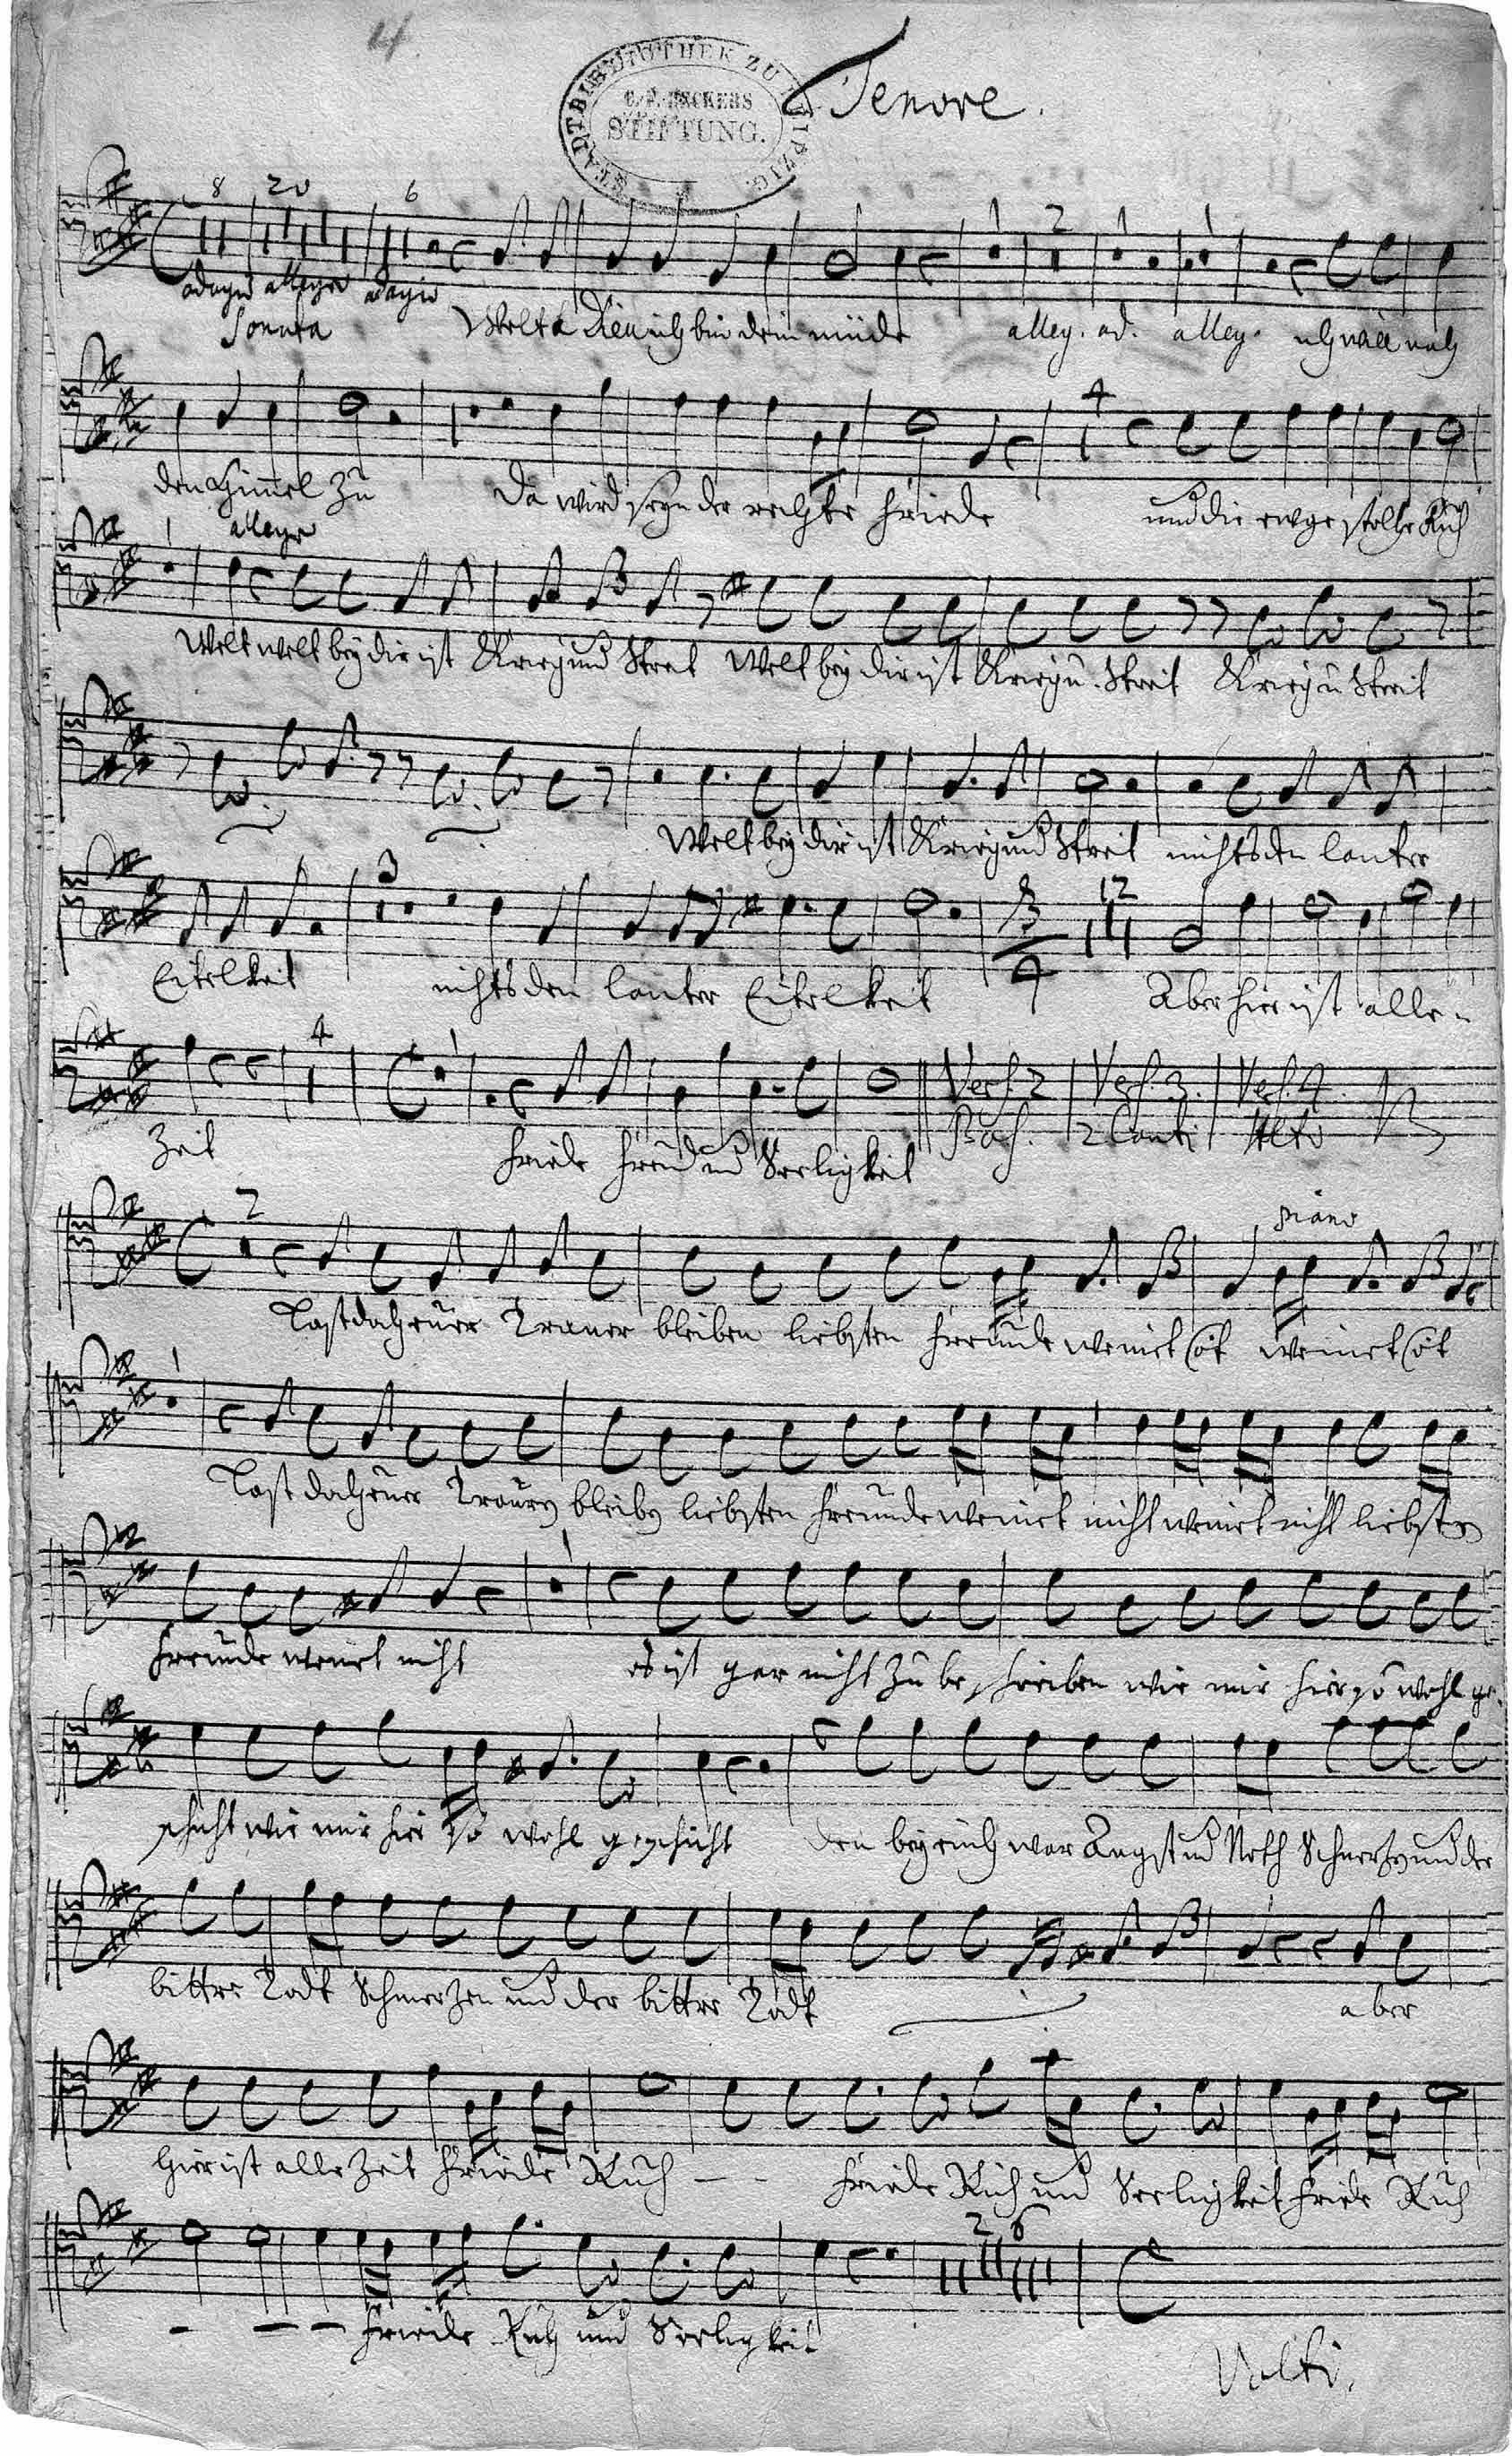 4.
STADTBIBLIOTHEK ZU LEIPZIG.
C. F. BECKERS
STIFTUNG.
Tenore.
8 20 6
adagio allegro adagio
Sonata Welt ade ich bin dein müde alleg. ad. alleg. ich will nach
2
den Himel zu Da wird seyn der rechte Friede und die ewge stoltze Ruh
4
allegro
Welt welt bey dir ist Krieg und Streit Welt bey dir ist Krieg u. Streit Krieg u Streit
Welt bey dir ist Krieg und Streit nichts den lauter
3 3/4 12
Eitelkeit nichts den lauter Eitelkeit Aber hier ist alle
4 Vers. 2 Vers. 3. Vers. 4
Bass. 2 Canti Alto
Zeit Friede Freud und Seeligkeit
2 piano
Last daheuer Trauer bleiben liebsten Freunde weinet weinet
Last daheuer Traurn bleiben liebsten Freunde weinet nicht weinet nicht liebsten
Freunde weinet nicht es ist gar nicht zu beschreiben wie mir hier so wohl ge-
schicht wie mir hier so wohl geschicht den bey euch war Angst und Noth Schmerzen und der
bittre Todt Schmerzen und der bittre Todt aber
hier ist alle Zeit Friede Ruh — - Friede Ruh und Seeligkeit Friede Ruh
2 6
- — — Friede Ruh und Seeligkeit
Volti.